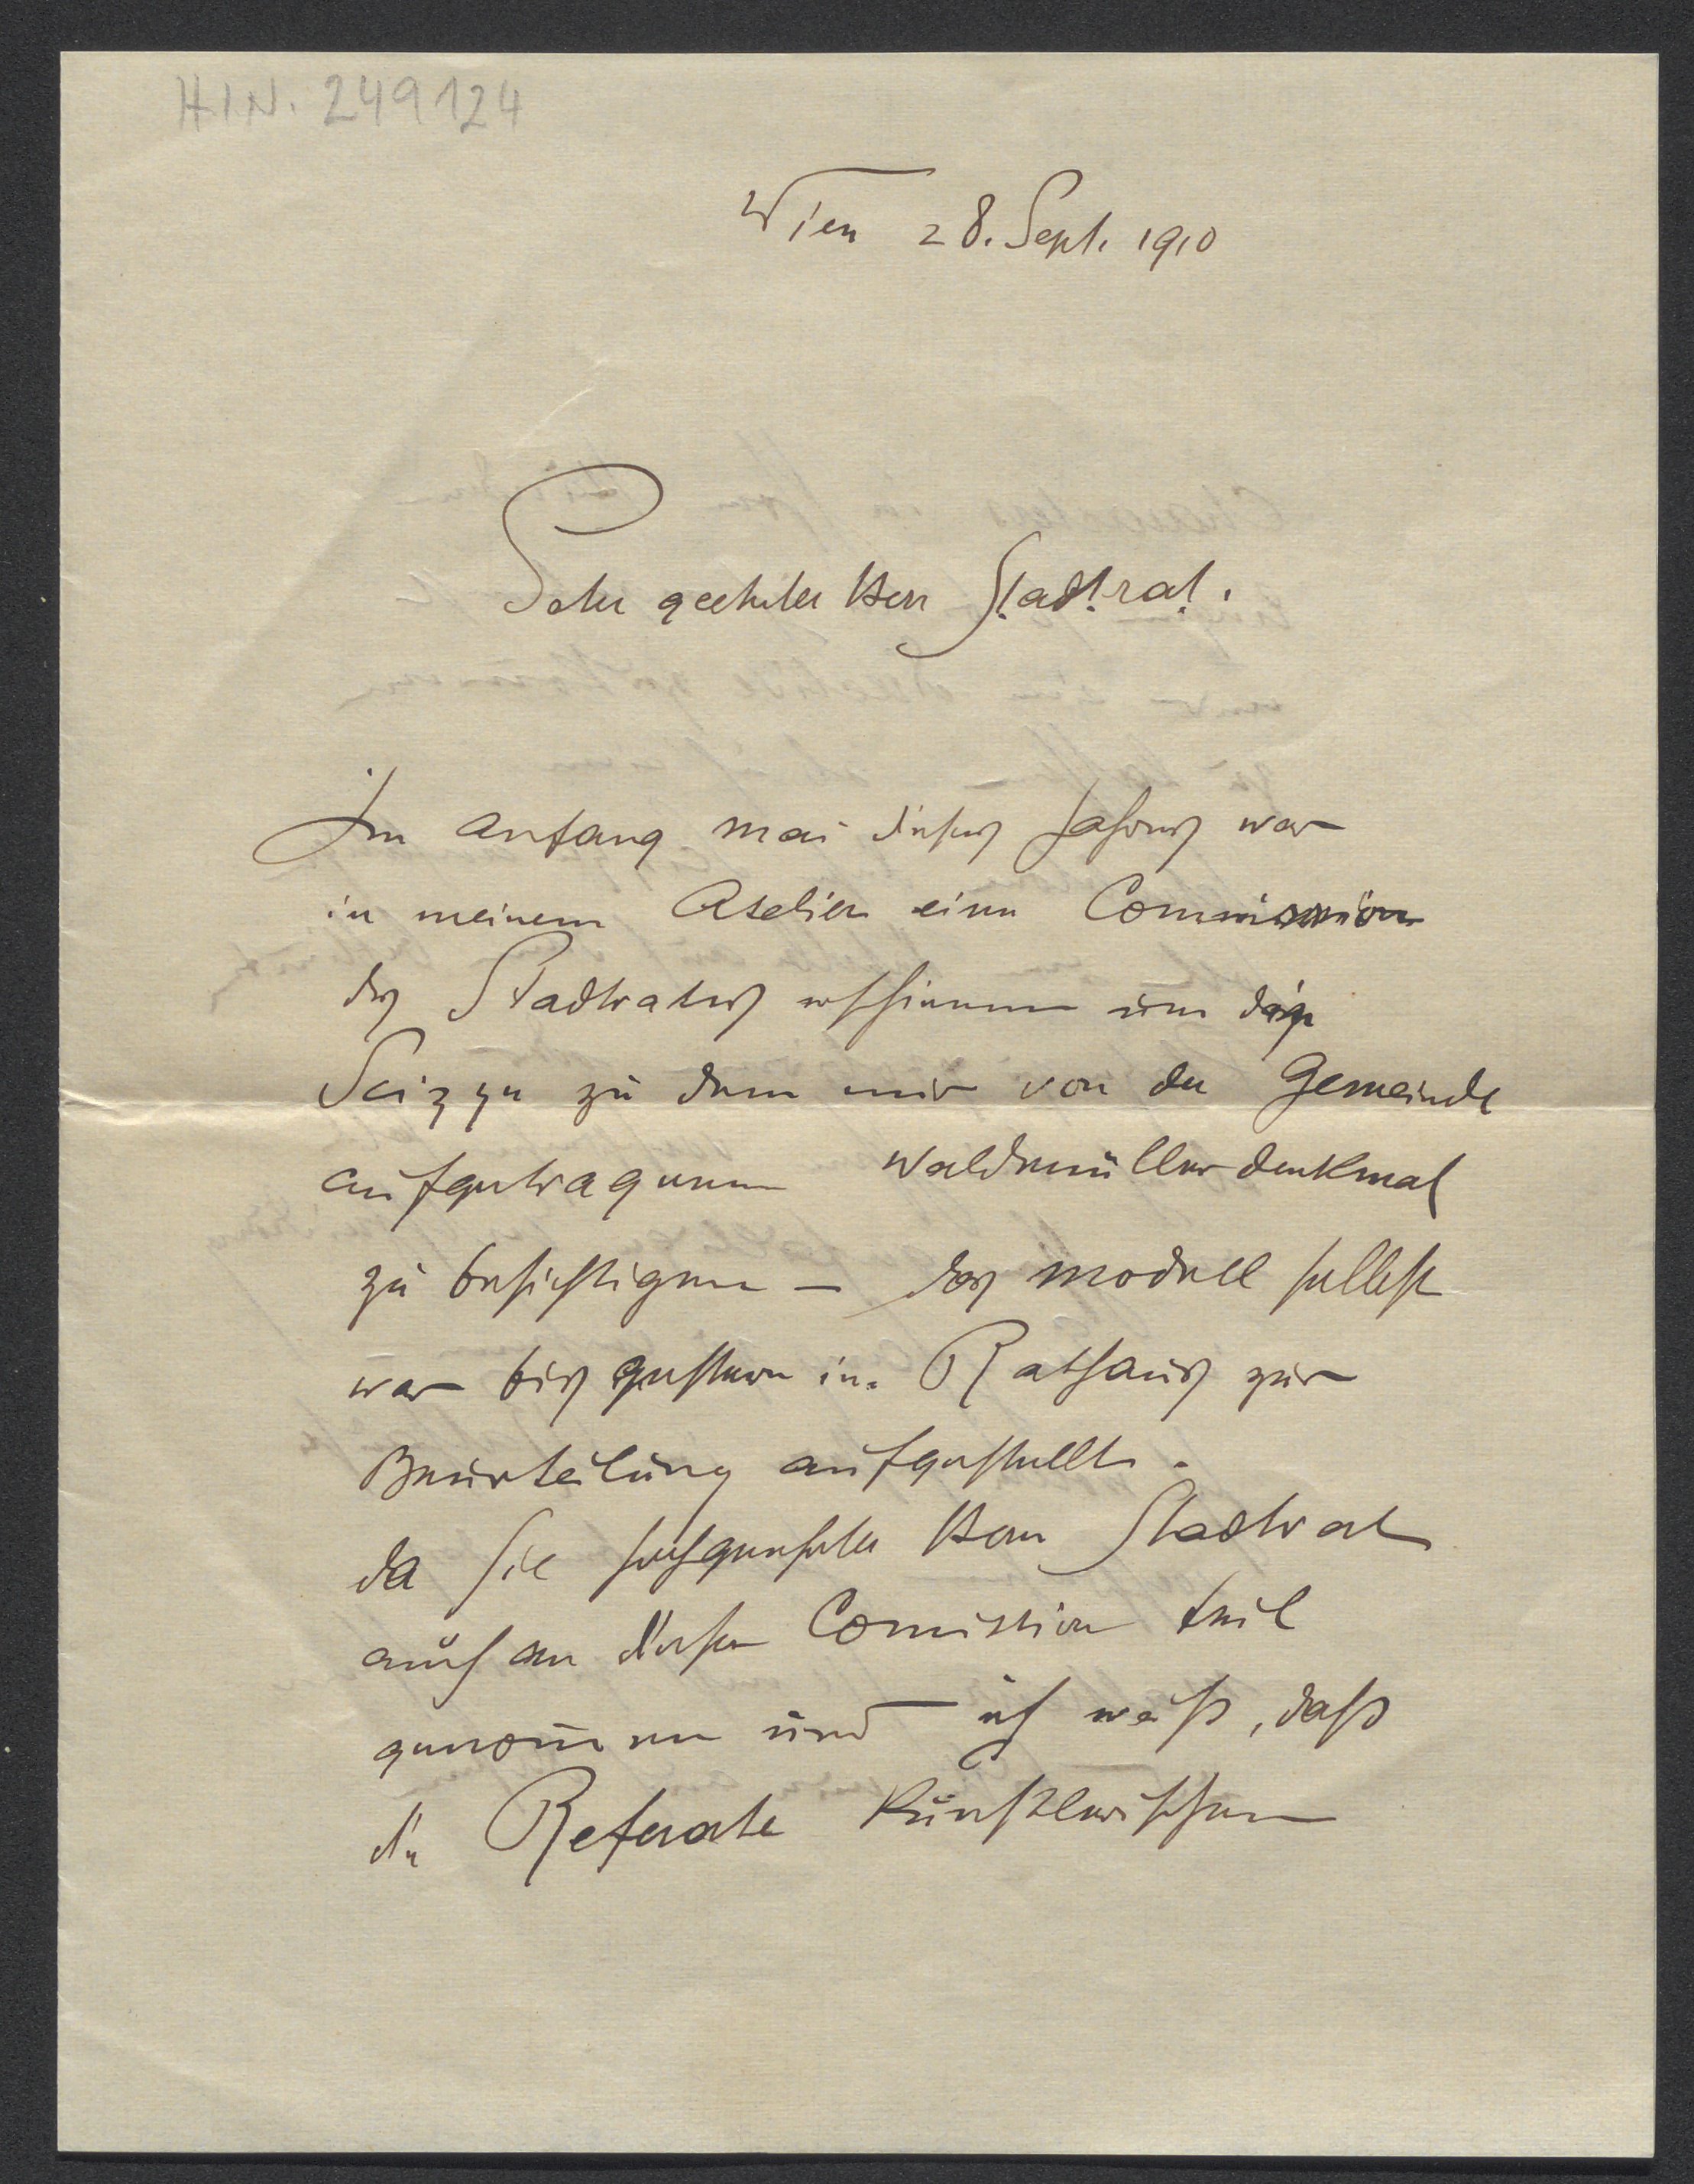 H.I.N. 249124
Wien 28. Sept. 1910
Sehr geehrter Herr Stadtrat.
Im Anfang Mai dieses Jahres war
in meinem Atelier eine Commission
des Stadtrates erschienen um die
Scizze zu dem mir von der Gemeinde
aufgetragenen Waldmüllerdenkmal
zu besichtigen – das Modell selbst
war bis gestern in. Rathaus zur
Beurteilung aufgestellt.
da Sie hochgeehrter Herr Stadtrat
auch an dieser Comission teil
genom̄en und ich weiß, daß
die Referate künstlerischen